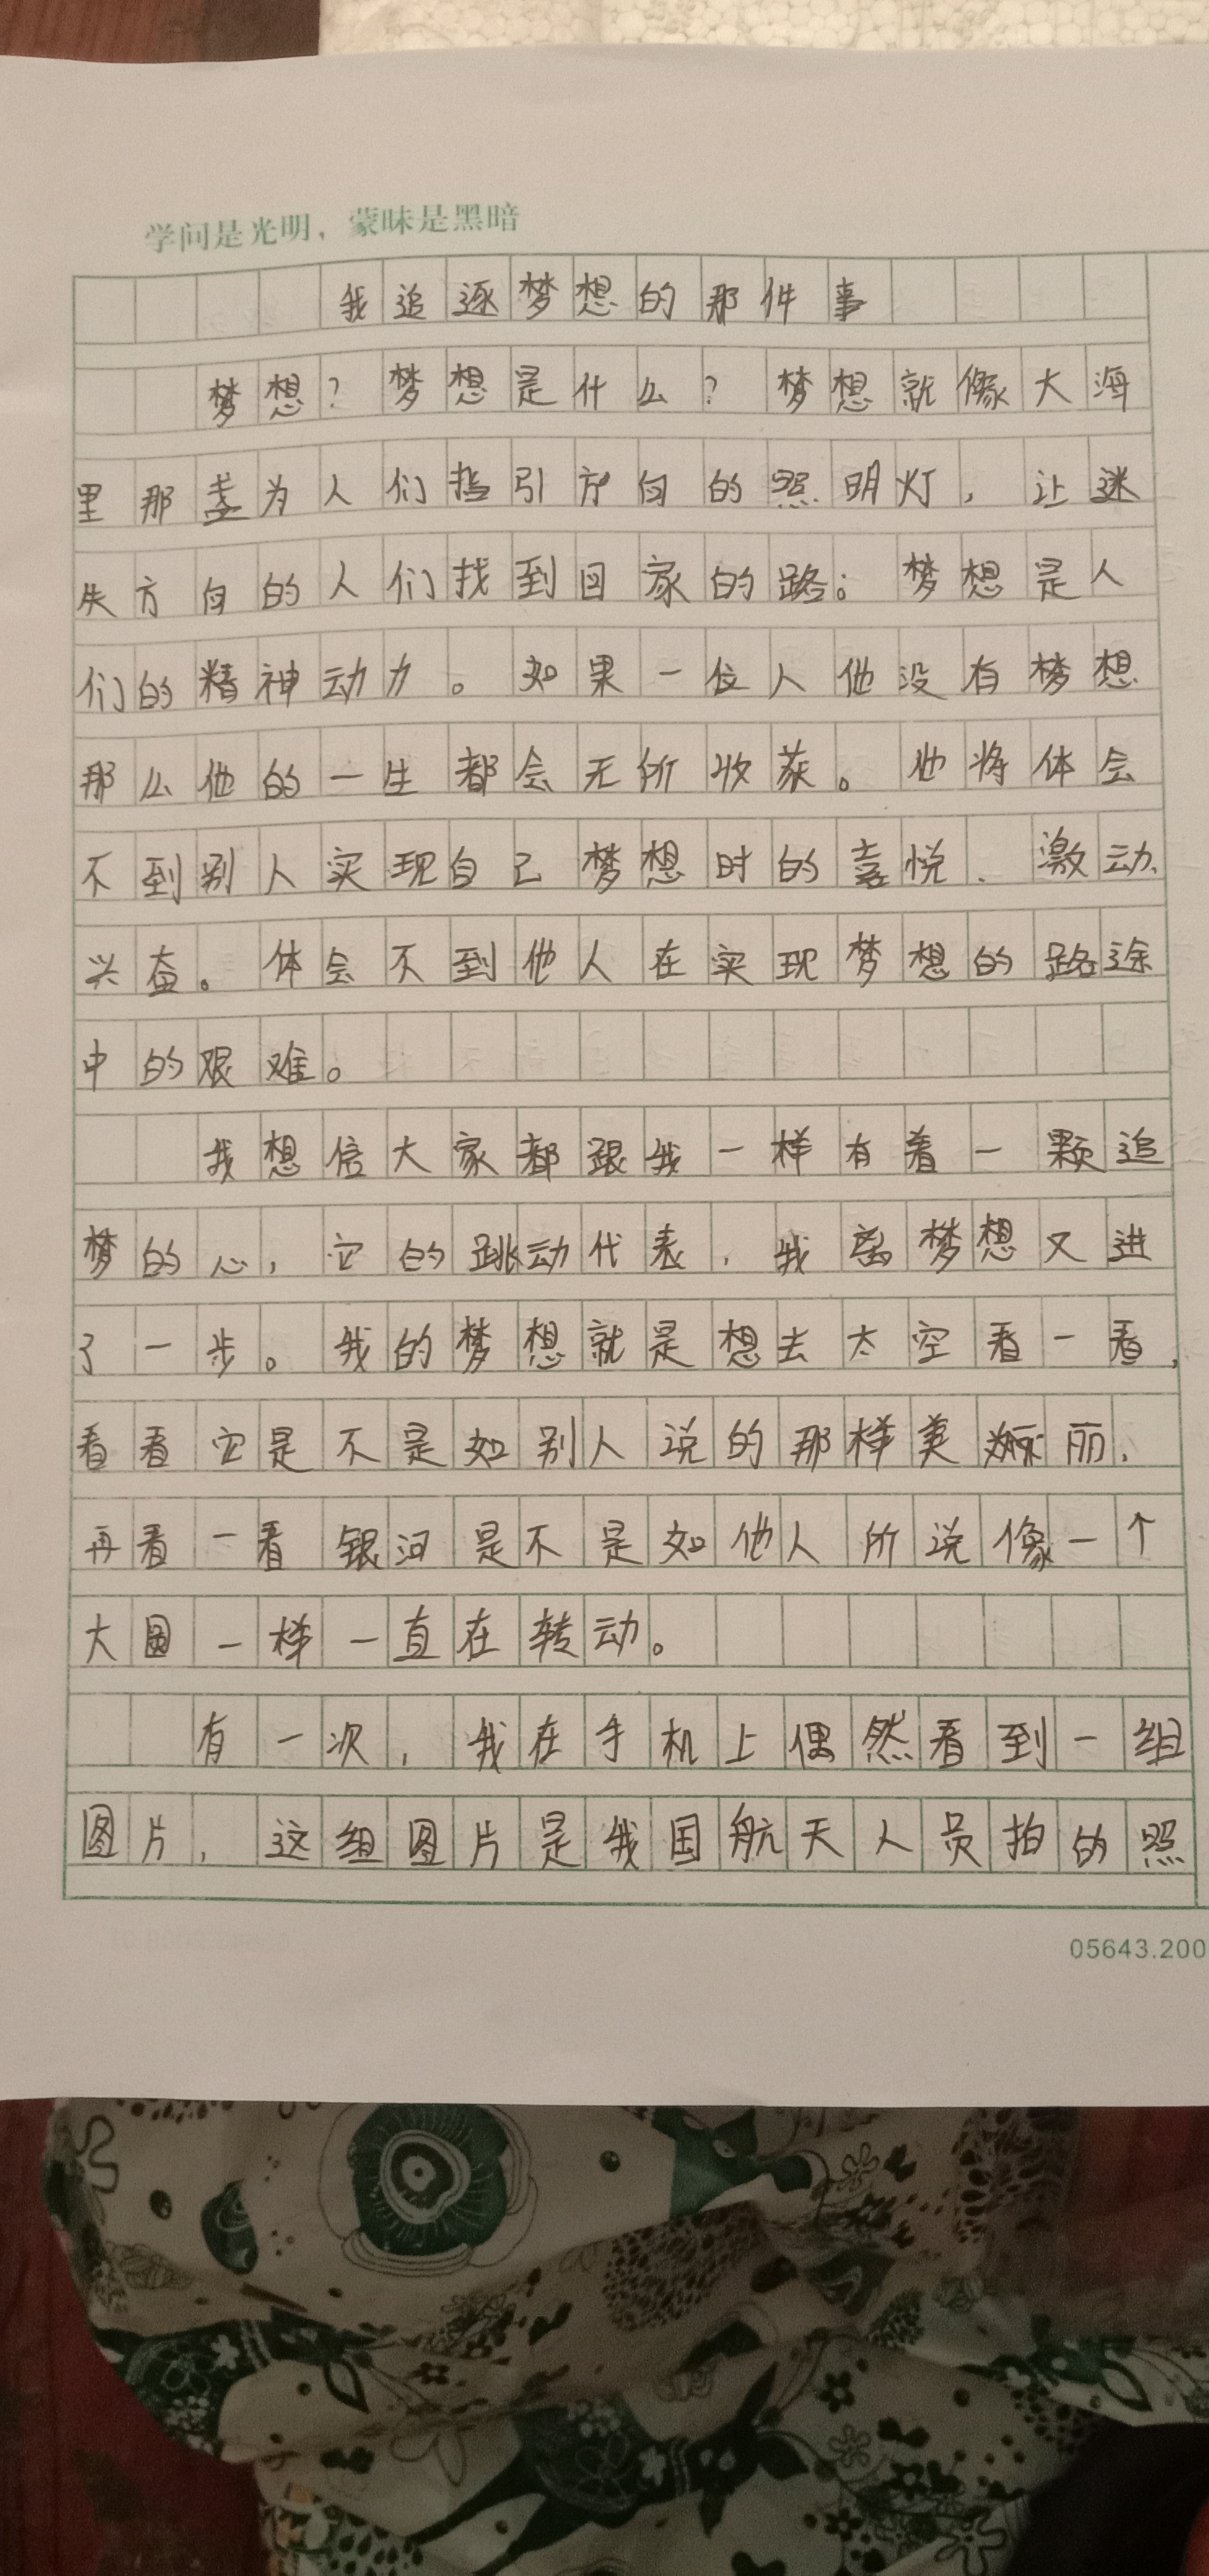 学问是光明，蒙昧是黑暗
我追逐梦想的那件事
梦想？梦想是什么？梦想就像大海
里那盏为人们指引方向的照明灯，让迷
失方向的人们找到回家的路；梦想是人
们的精神动力。如果一位人他没有梦想
那么他的一生都会无所收获。他将体会
不到别人实现自己梦想时的喜悦、激动、
兴奋。体会不到他人在实现梦想的路途
中的艰难。
我想信大家都跟我一样有着一颗追
梦的心，它的跳动代表，我离梦想又进
了一步。我的梦想就是想去太空看一看，
看看它是不是如别人说的那样美丽，
再看一看银河是不是如他人所说像一个
大圆一样一直在转动。
有一次，我在手机上偶然看到一组
图片，这组图片是我国航天人员拍的照
05643.200